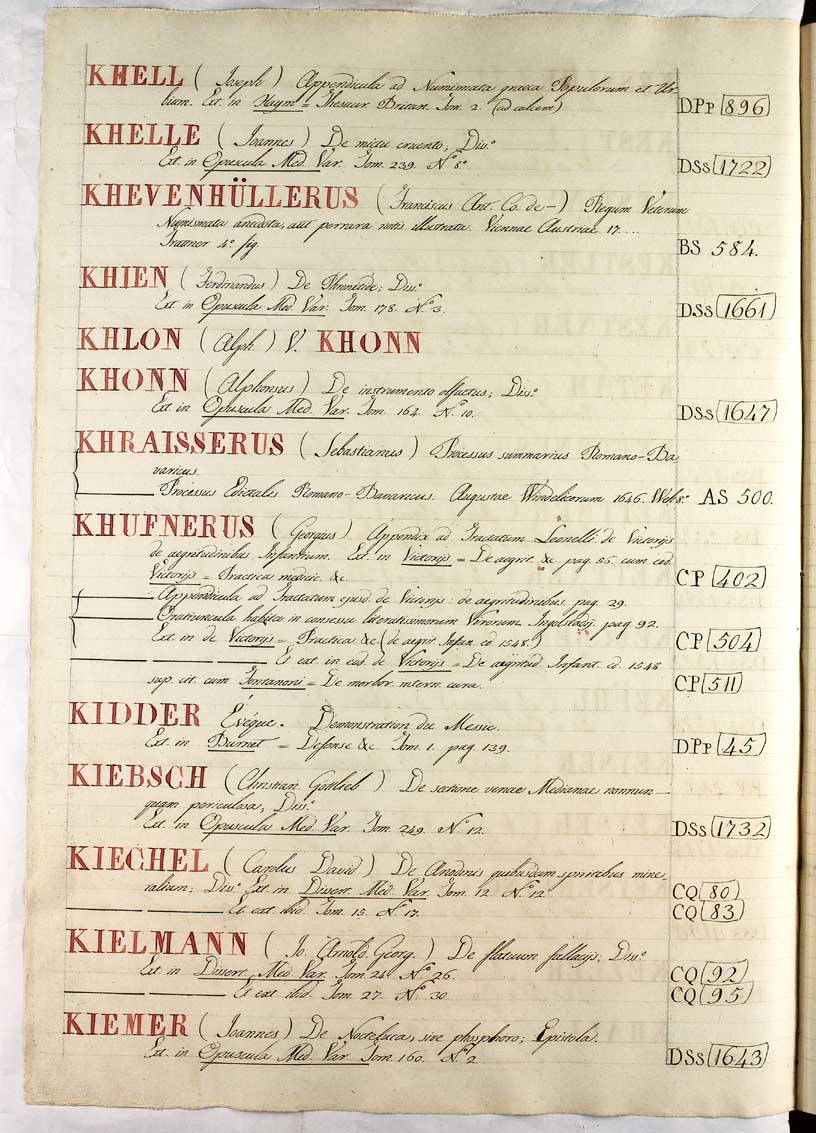 KHELL (Joseph) Appendicula ad Numismata graeca Populorum et Ur-
bium. Ext. in Haym = Thesaur Britan. Tom. 2. (ad calcem) DPp 896
KHELLE (Joannes) De mictu cruento; Dis.º
Ext. in Opuscula Med. Var. Tom. 239. Nº 8º DSs 1722
KHEVENHÜLLERUS (Franciscus Ant. Co. de-) Regum Veterum
Numismata anecdota, aut perrara notis illustrata. Viennae Austriae 17...
Trattner 4º fig. BS 584.
KHIEN (Ferdinandus) De Phrenitide; Dis.º
Ext. in Opuscula Med. Var. Tom. 178. Nº 3. DSs 1661
KHLON (Alph.) V. KHONN
KHONN (Alphonsus) De instrumento olfactus; Dis.º
Ext. in Opuscula Med. Var. Tom. 164. Nº 10. DSs 1647
KHRAISSERUS (Sebastianus) Processus summarius Romano-Ba-
varicus.
Processus Edictales Romano-Bavaricus. Augustae Windelicorum 1646. 8º AS 500.
KHUFNERUS (Georgius) Appendix ad Tractatum Leonelli de Victorijs
de aegritudinibus Infantium. Ext. in Victorijs = De aegrit. &c pag. 56. cum eod.
Victorijs = Practica medic. &c CP 402
Appendicula ad Tractatum ejusd. de Victorijs: de aegritudinibus. pag. 29.
Oratiuncula habita in consessu literatissimorum Virorum Ingolstadij. pag 92.
Ext. in de Victorijs = Practica &c (de aegrit. Infan. ed. 1548.) CP 504
Et ext. in ead. de Victorijs = De aegritud Infant. ed. 1548
sup. cit. cum Fontanoni = De morbor. intern. cura. CP 511
KIDDER Evéque. Demonstration du Messie.
Ext. in Burnet = Defense &c. Tom. 1. pag. 139. DPp 45
KIEBSCH (Christian. Gottlieb) De sectione venae Medianae nonnun-
quam periculosa, Dis.º
Ext. in Opuscula Med. Var. Tom. 249. Nº 12. DSs 1732
KIECHEL (Carolus David) De Anodinis quibusdam spiritibus mine-
ralium; Dis.º Ext. in Dissert. Med. Var. Tom. 12. Nº 12 CQ 80
Et ext ibid. Tom. 15. Nº 17. CQ 83
KIELMANN (Jo. Arnold. Georg.) De flatuum fallacijs; Dis.º
Ext. in Dissert. Med. Var. Tom. 24. Nº 26. CQ 92
Et ext. ibid. Tom. 27. Nº 30 CQ 95
KIEMER (Joannes) De Noctiluca, sive phosphoro; Epistola.
Ext. in Opuscula Med. Var. Tom. 160. Nº 2 DSs 1643